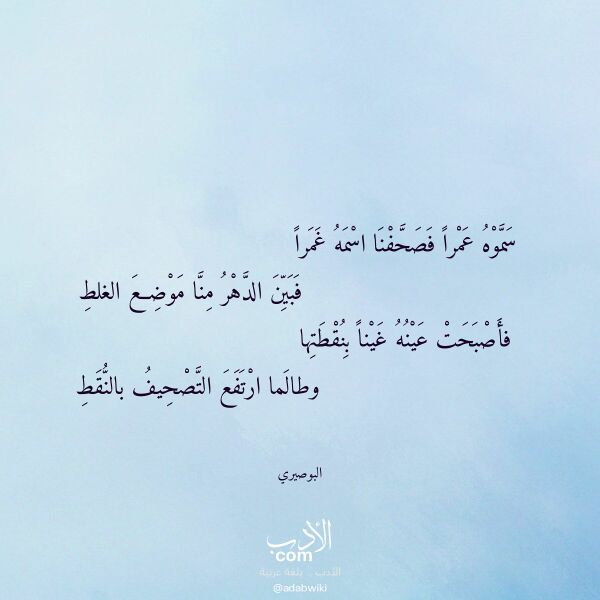 سَمَّوْهُ عَمْراً فَصَحَّفْنَا اسْمَهُ غَمَراً
فَبَيِّنَ الدَّهْرُ مِنَّا مَوْضِعَ الغلطِ
فأَصْبَحَتْ عَيْنُهُ غَيْناً بِنُقْطَتِها
وطالَما ارْتَفَعَ التَّصْحِيفُ بالنُّقَطِ
البوصيري
الأدب
com
الأدب .. بلغة عربية
@adabwiki